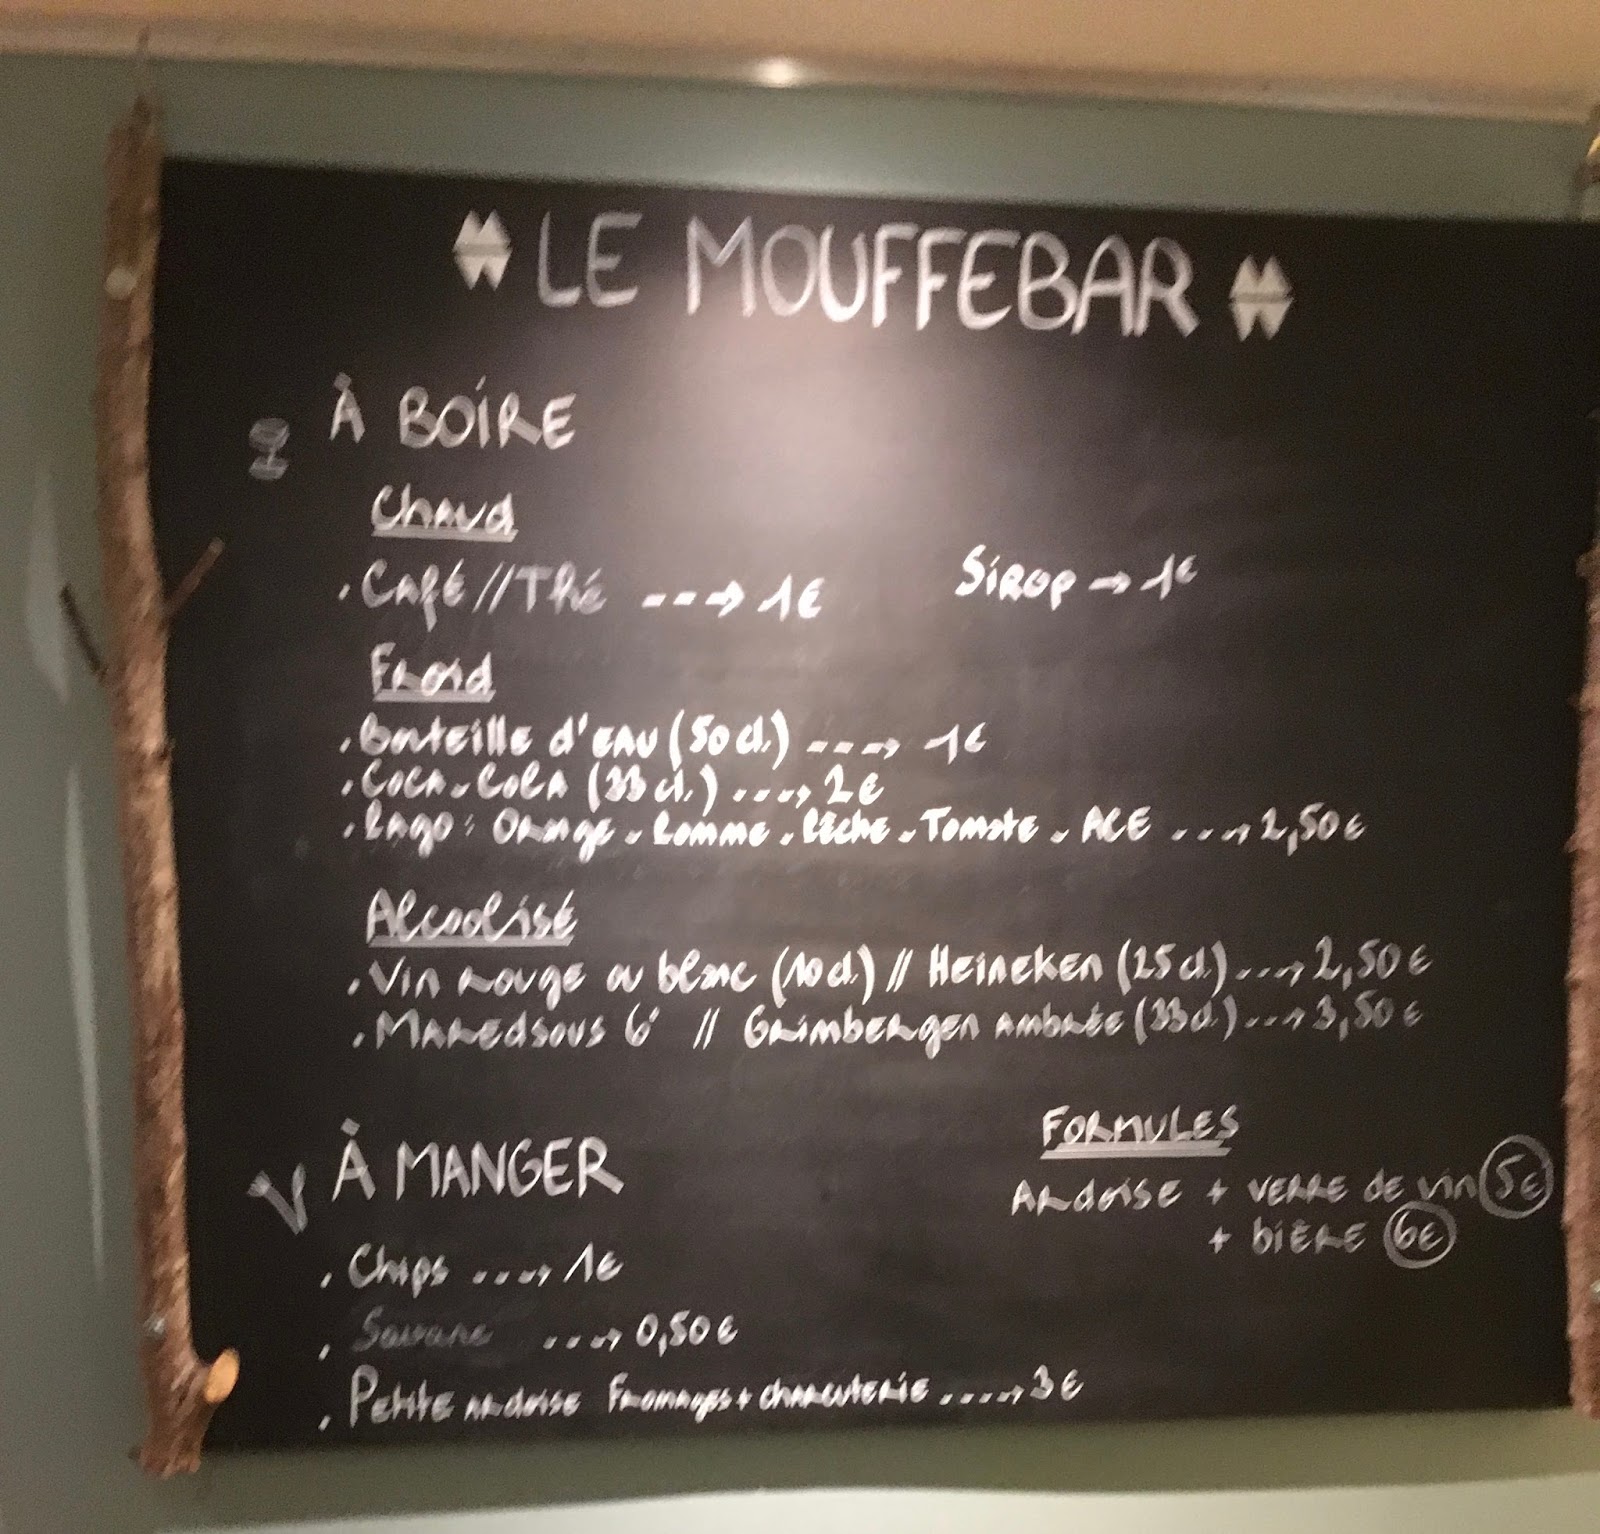 LE MOUFFEBAR
À BOIRE
Chaud
. Café // Thé ---→ 1€
Sirop → 1€
Froid
. Bouteille d'eau (50 cl.) ---→ 1€
. Coca-Cola (33 cl.) ---→ 2€
. Pago : Orange - Pomme - Pêche - Tomate - ACE ---→ 2,50€
Alcoolisé
. Vin rouge ou blanc (10 cl.) // Heineken (25 cl.) ---→ 2,50€
. Maredsous 6° // Grimbergen ambrée (33 cl.) ---→ 3,50€
À MANGER
. Chips ----→ 1€
. Savane ---→ 0,50€
. Petite ardoise Fromages + charcuterie ----→ 3€
FORMULES
Ardoise + verre de vin 5€
+ bière 6€